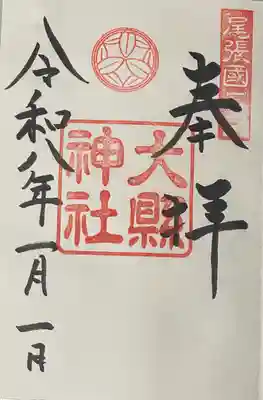 尾張國
奉拝
大縣
神社
令和八年一月一日